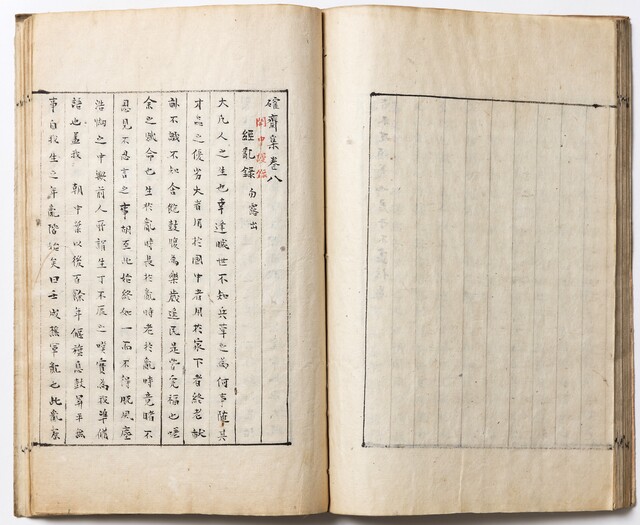 確齋集卷八
中
經亂錄
大凡人之生也幸達晠世不知兵革之為何事隨其
才器之優劣大者用於國中者用於家下者終老畎
畝不識不知含飽鼓腹為樂歲逸民是豈福也噫
余之賦命也生於亂時長於亂時老於亂時竟睹不
忍見不忍言之事胡至此始終如一而不得脫風塵
浩㤼之中前人所謂生丁不辰之嘆實為我準備
語也盖我 朝中葉以後百餘年偃旗息鼓昇平無
事自我生之年亂階始矣曰壬軍亂也此亂